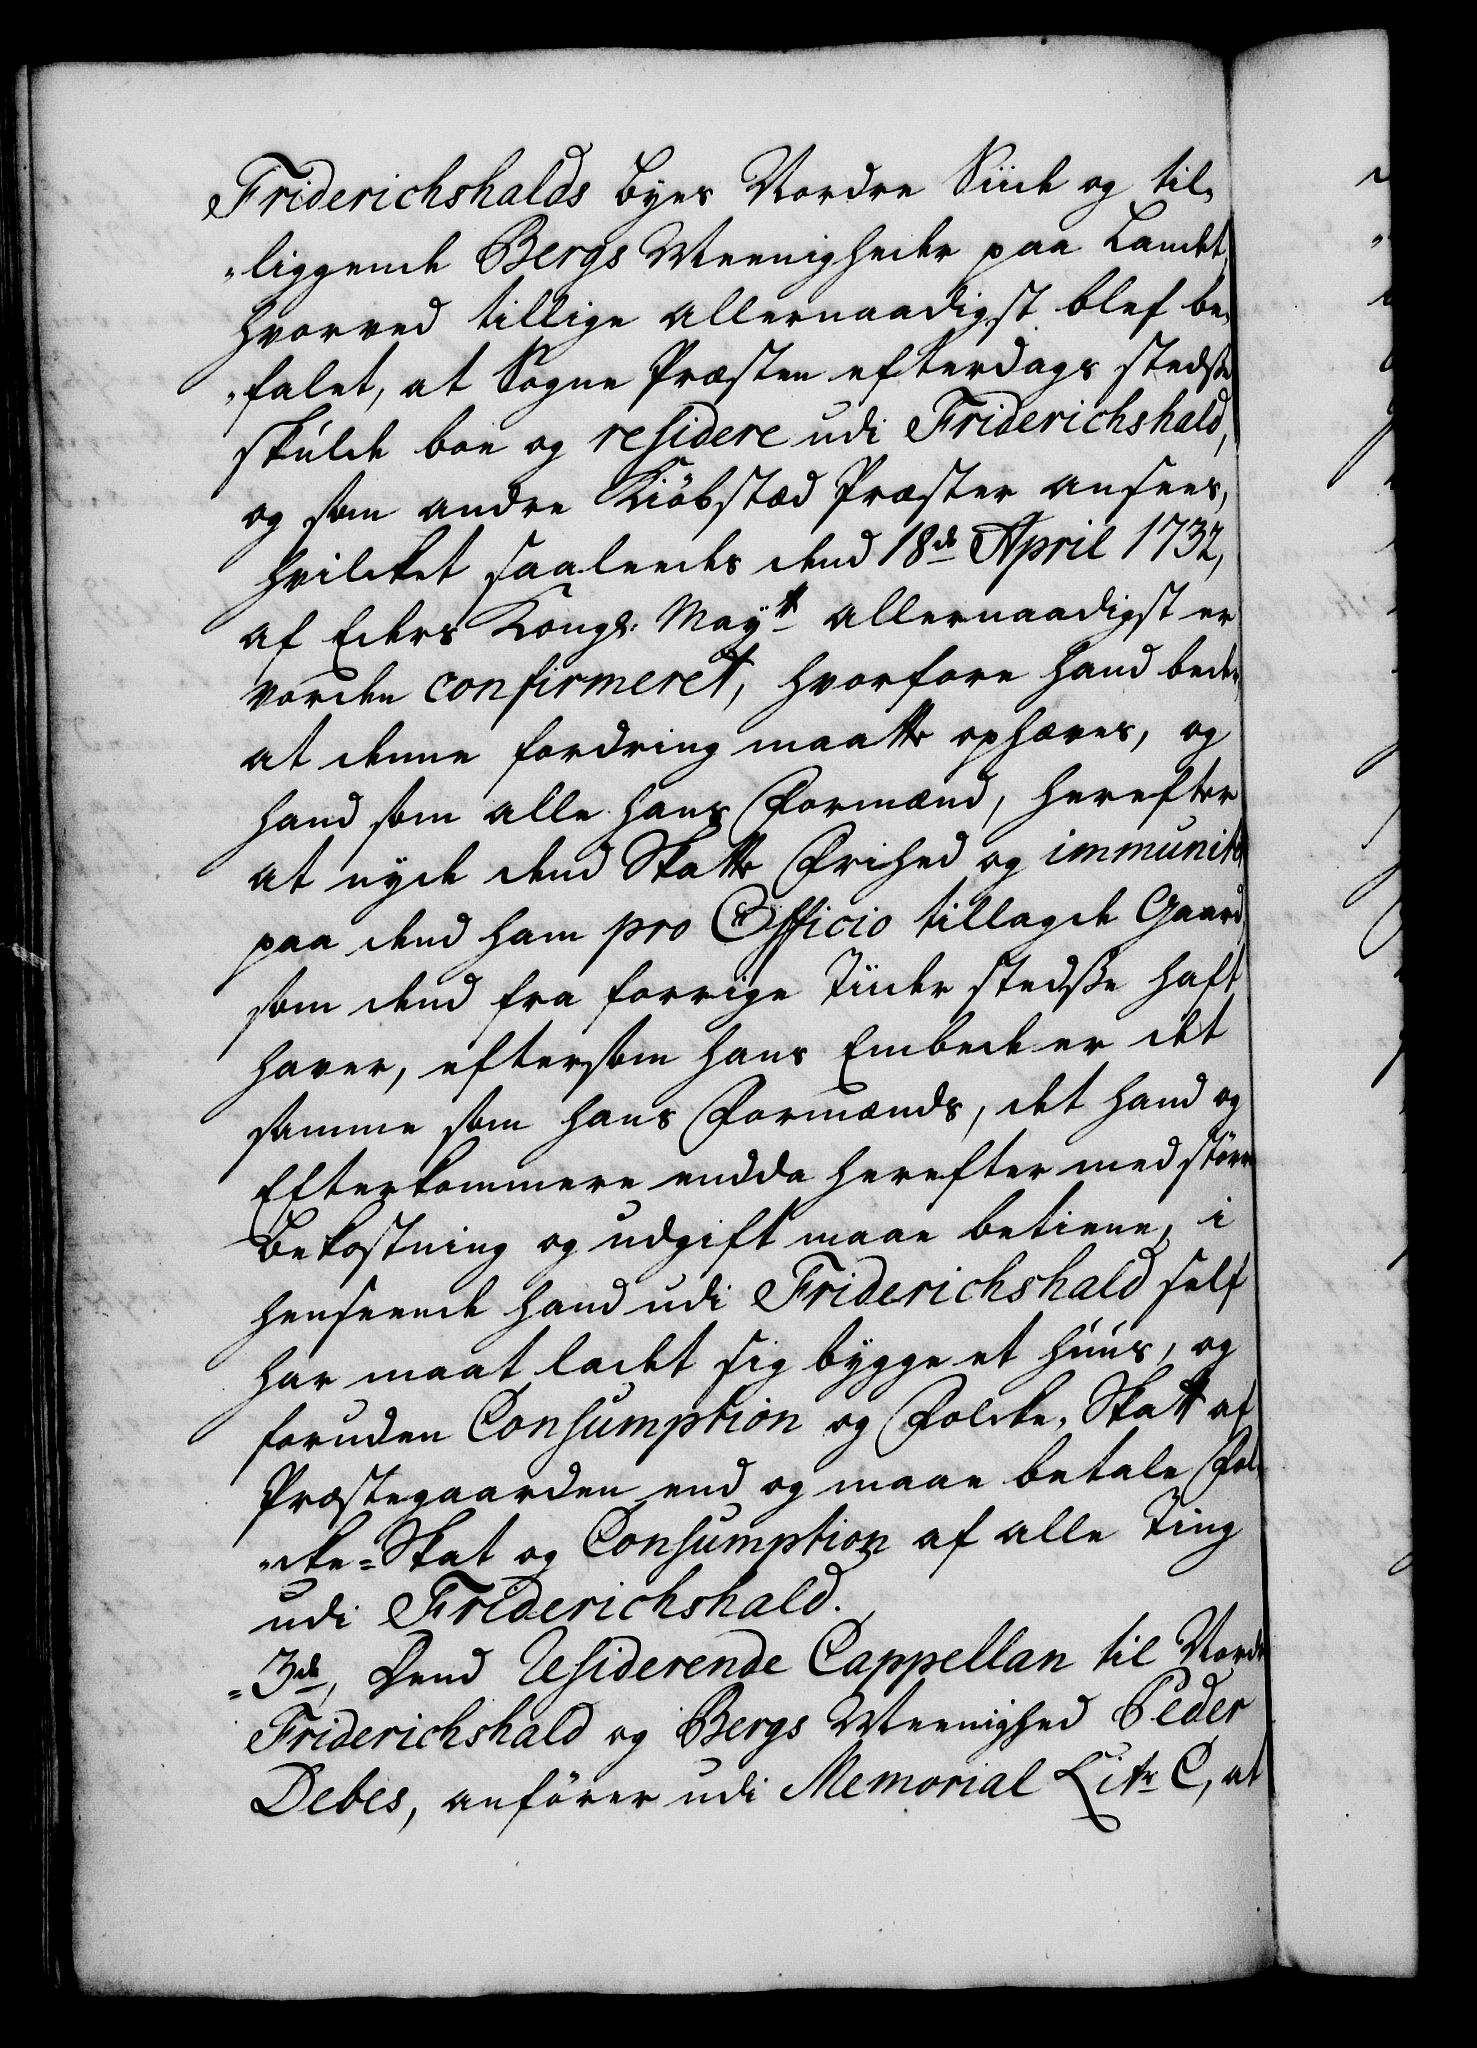 Friderichshalds Byes Nordre Siide og til„
„liggende Bergs Meenigheder paa Landet,
hvorved tillige allernaadigst blef be„
„falet, at Sogne Præsten efterdags stedse
skulde boe og residere udi Friderichshald,
og som andre Kiöbstæd Præster ansees,
hvilcket saaleedes dend 18de April 1732,
af Eders Kongl: Mayᵗᵗ allernaadigst er
vorden confirmeret, hvorfore hand beder,
at denne fordring maatte ophæves, og
hand som alle hans Formænd, herefter
at nyde dend Skatte Frihed og immunitet
paa dend ham pro Officio tillagde Gaard,
som dend fra forrige Tiider stedsse haft
haver, eftersom hans Embede er det
samme som hans Formænds, det hand og
Efterkommere endda herefter med större
Bekostning og udgift maae betiene, i
henseende hand udi Friderichshald self
har maat ladet sig bygge et huus, og
foruden Consumption og Folcke„Skatt af
Præstegaarden end og maae betale Fol„
„cke=Skat og Consumption af alle Ting
udi Friderichshald.
=3de, Dend Residerende Cappellan til Nordre
Friderichshald og Bergs Meenighed Peder
Debes, anförer udi Memorial Litr C, at